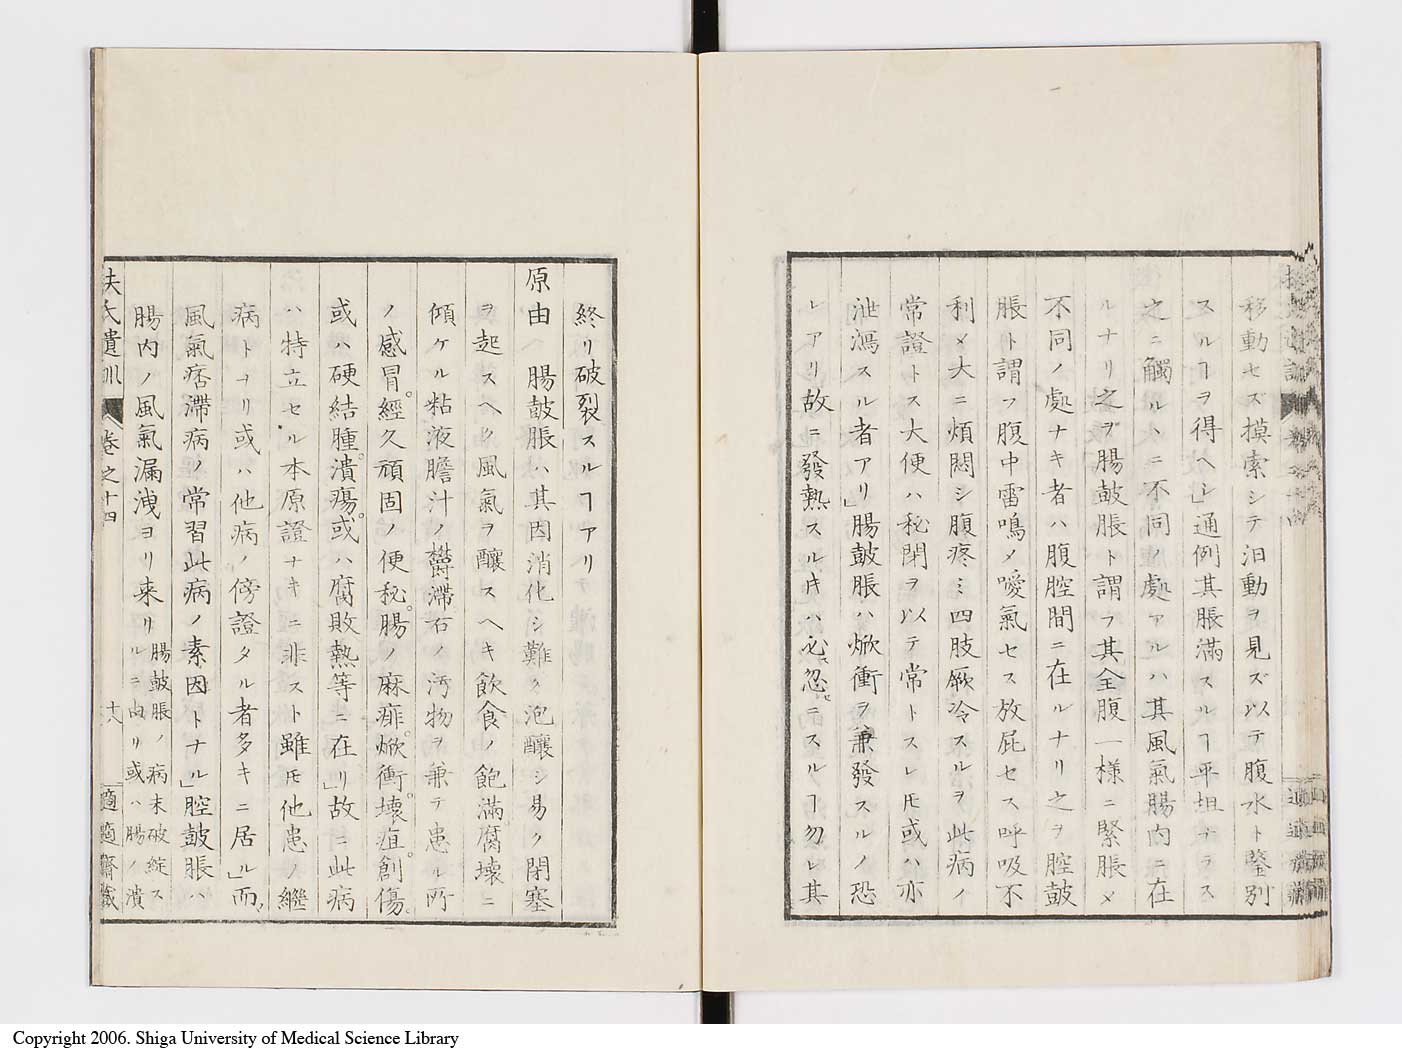 移動セズ摸索シテ汨動ヲ見ズ以テ腹水ト鑒別
スルヿヲ得ヘシ」通例其脹滿スルヿ平坦ナラス
之ニ觸ルヽニ不同ノ處アルハ其風氣腸内ニ在
ルナリ之ヲ腸皷脹ト謂フ其全腹一様ニ緊脹メ
不同ノ處ナキ者ハ腹腔間ニ在ルナリ之ヲ腔皷
脹ト謂フ腹中雷鳴メ噯氣セス放屁セス呼吸不
利メ大ニ煩悶シ腹疼ミ四肢厥冷スルヲ此病ノ
常證トス大便ハ秘閉ヲ以テ常トスレ𪜈或ハ亦
泄瀉スル者アリ」腸皷脹ハ焮衝ヲ兼發スルノ恐
レアリ故ニ發熱スル𪜈ハ必ス忽ニスルヿ勿レ其
終リ破裂スルヿアリ
原由 腸皷脹ハ其因消化シ難ク泡釀シ易ク閉塞
ヲ起スヘク風氣ヲ釀スヘキ飲食ノ飽滿腐壊ニ
傾ケル粘液膽汁ノ欝滯石ノ汚物ヲ兼テ患ル所
ノ感冒。經久頑固ノ便秘。腸ノ麻痺。焮衝。壊疽。創傷。
或ハ硬結腫。潰瘍。或ハ腐敗熱等ニ在リ」故ニ此病
ハ特立セル本原證ナキニ非スト雖𪜈他患ノ繼
病トナリ或ハ他病ノ傍證タル者多キニ居ル」而
風氣痞滯病ノ常習此病ノ素因トナル」腔皷脹ハ
腸内ノ風氣漏洩ヨリ来リ 腸皷脹ノ病末破綻ス
ルニ由リ或ハ腸ノ潰
扶氏遺訓 卷之十四 十八 適適齋藏
Copyright 2006. Shiga University of Medical Science Library